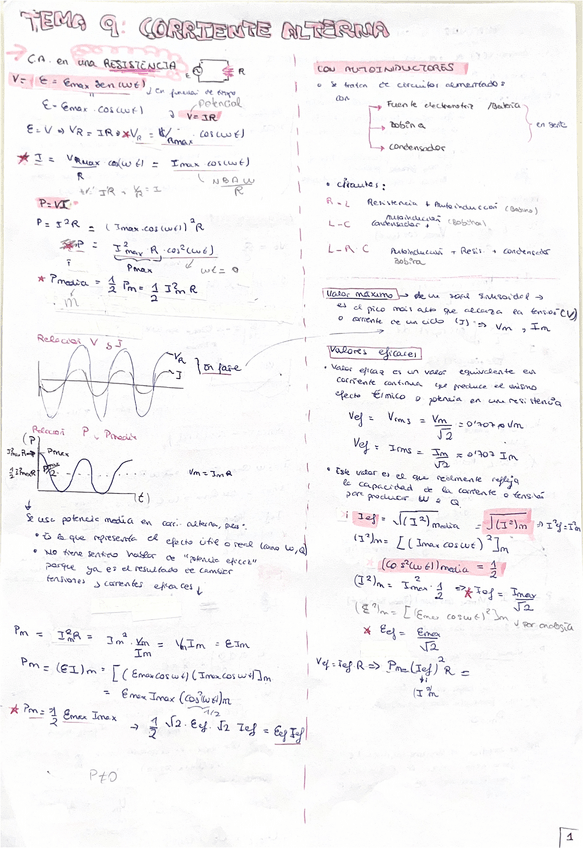 TEMA 9: CORRIENTE ALTERNA
C.A. en una RESISTENCIA
R
V = ε = εmax sen(ωt) ↓ En función de tiempo
ε = εmax · cos(ωt)
potencial
V = IR
ε = V ⇒ VR = IR ⇒ * VR = VRmax · cos(ωt)
* I = VRmax cos(ωt) / R = Imax cos(ωt)
NBAω / R
P = VI
P = I²R = (Imax cos(ωt))² R
P = I²max R · cos²(ωt)
Pmax
ωt = 0
* Pmedia = 1/2 Pm = 1/2 I²m R
m
Relación V y I
VR
I
En fase
Relación P y Pmedia
(P)
I²m R → Pmax
1/2 I²m R
(t)
Vm = Im R
↓
Se usa potencia media en corri. alterna, pues:
• Es la que representa el efecto útil o real (como W, Q)
• No tiene sentido hablar de "potencia eficaz"
porque ya es el resultado de cambiar
tensiones y corrientes eficaces ↓
Pm = I²m R = Im² · Vm / Im = Vm Im = εIm
Pm = (εI)m = [(εmax cos ωt)(Imax cos ωt)]m
= εmax Imax (cos²ωt)m
1/2
* Pm = 1/2 εmax Imax → 1/2 √2 · εef · √2 Ief = εef Ief
P≠0
CON AUTOINDUCTORES
• Se trata de circuitos alimentados
con
→ Fuente electromotriz /Batería
→ Bobina
→ condensador
en serie
• circuitos:
R - L Resistencia + Autoinducción (Bobina)
L - C Autoinducción (Bobina)
condensador +
L - R - C Autoinducción + Resis. + condensador
Bobina
Valor máximo → de un señal sinusoidal →
es el pico más alto que alcanza la tensión (V)
o corriente de un ciclo (I) ⇒ Vm, Im
Valores eficaces
• Valor eficaz es un valor equivalente en
corriente continua que produce el mismo
efecto térmico o potencia en una resistencia
Vef = Vrms = Vm / √2 = 0'707 Vm
Vef = Irms = Im / √2 = 0'707 Im
• Este valor es el que realmente refleja
la capacidad de la corriente o tensión
por producir W o Q
Ief = √(I²)media = √(I²)m ⇒ I²ef = I²m
(I²)m = [(Imax cos ωt)²]m
(cos²(ωt))media = 1/2
(I²)m = I²max · 1/2 ⇒ * Ief = Imax / √2
(ε²)m = [(εmax cos ωt)²]m por analogía
* εef = εmax / √2
Vef = Ief R ⇒ Pm = (Ief)² R =
(I²)m
1